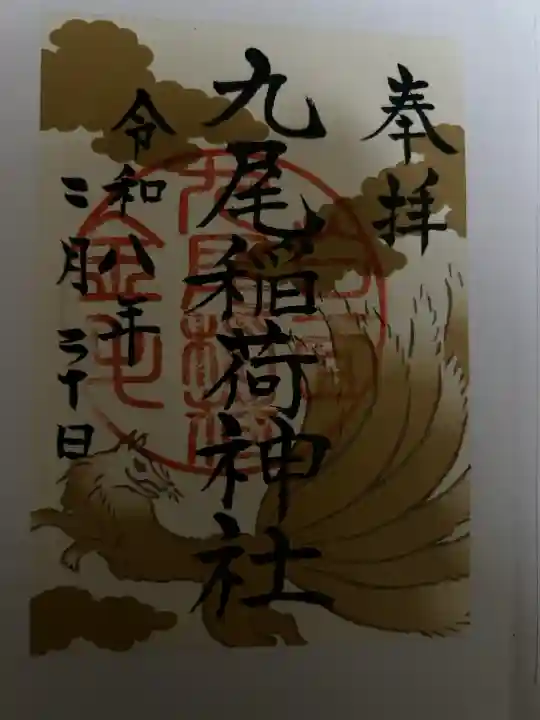 奉拝
九尾稲荷神社
令和八年
二月二十日